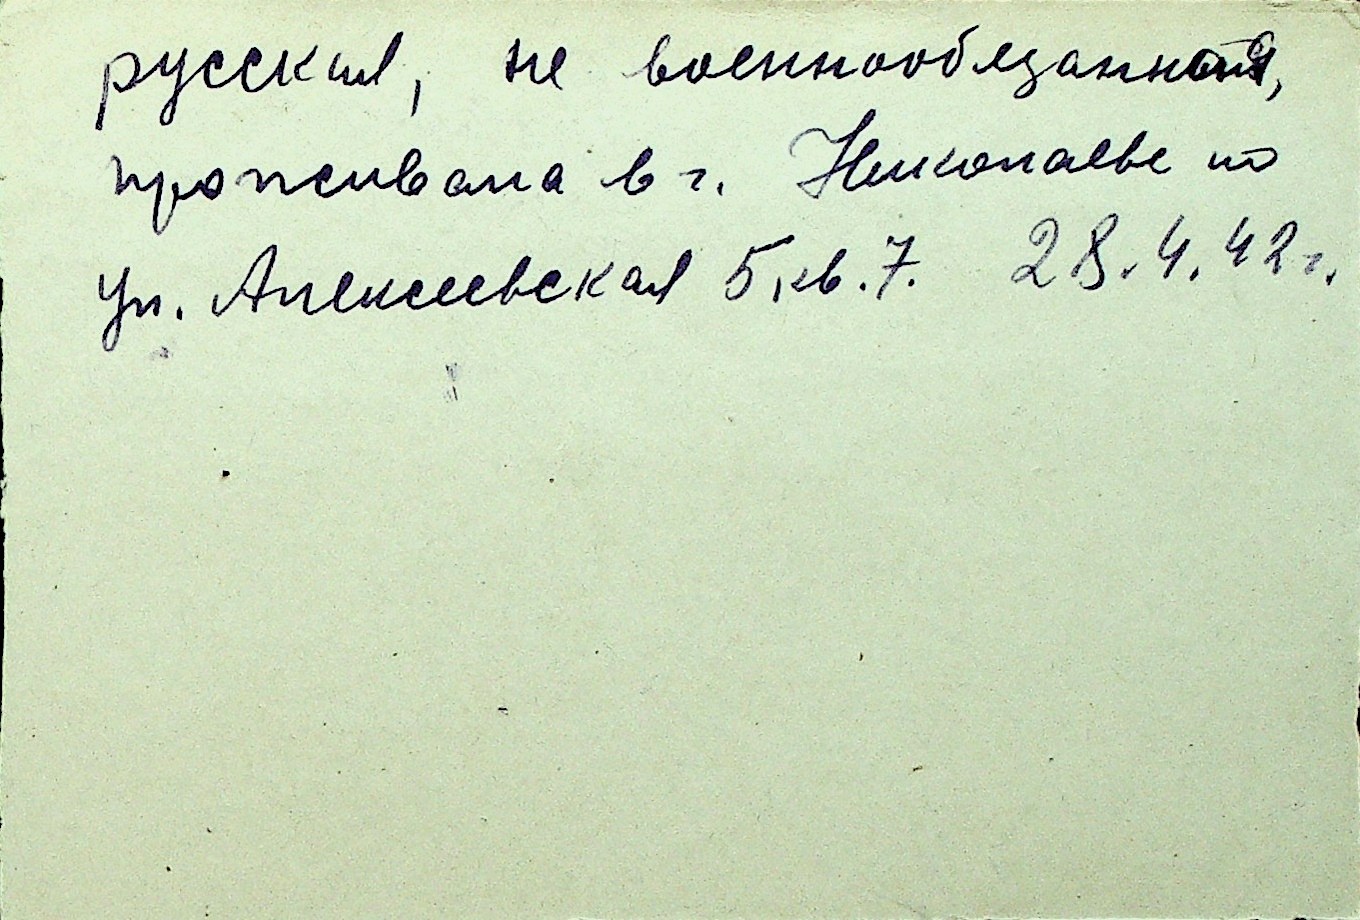 русская, не военнообязанная,
проживала в г. Николаеве по
ул. Алексеевская 5, кв. 7. 28.4.42 г.